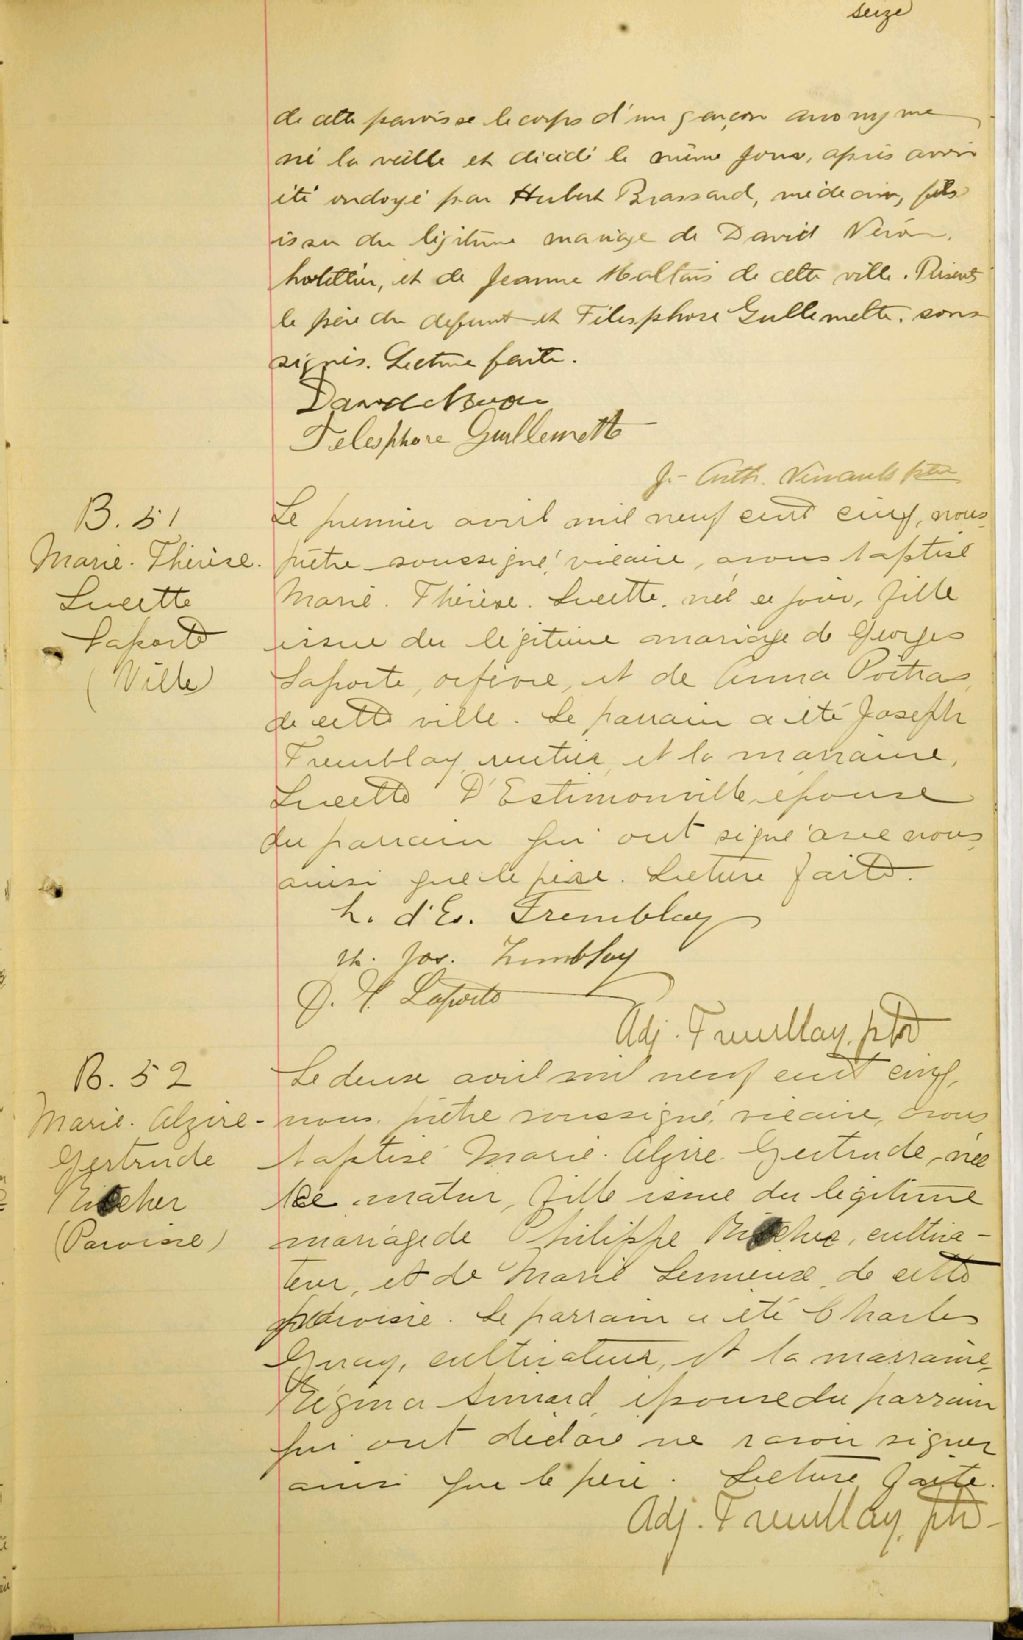 seize
de cette paroisse le corps d'un garçon anonyme
né la veille et décédé le même jour, après avoir
été ondoyé par Hubert Brassard, médecin, fils
issu du légitime mariage de David Néron,
hôtellier, et de Jeanne Maltais de cette ville. Présents
le père du defunt et Télesphore Guillemette. sous-
signés. Lecture faite.
David Néron
Télesphore Guillemette
J.-Arth. ptre
B. 51
Marie. Thérèse.
Lucette
Laporte
(Ville)
Le premier avril mil neuf cent cinq, nous,
prêtre soussigné, vicaire, avons baptisé
Marie. Thérèse. Lucette. née ce jour, fille
issue du légitime mariage de Georges
Laporte, orfèvre, et de Anna Poitras,
de cette ville. Le parrain a été Joseph
Tremblay, rentier, et la marraine,
Lucette D'Estimonville, épouse
du parrain qui ont signé avec nous,
ainsi que le père. Lecture faite.
L. d'Es. Tremblay
M. Jos. Tremblay
Laporte
Adj. Tremblay, ptr
B. 52
Marie. Alzire-
Gertrude
(Paroisse)
Le deux avril mil neuf cent cinq,
nous, prêtre soussigné, vicaire, avons
baptisé Marie. Alzire. Gertrude, née
ce matin, fille issue du légitime
mariage de Philippe cultiva-
teur, et de Marie Lemieux, de cette
paroisse. Le parrain a été Charles
Guay, cultivateur, et la marraine,
Régina Simard, épouse du parrain
qui ont déclaré ne savoir signer
ainsi que le père. Lecture faite.
Adj. Tremblay, ptr